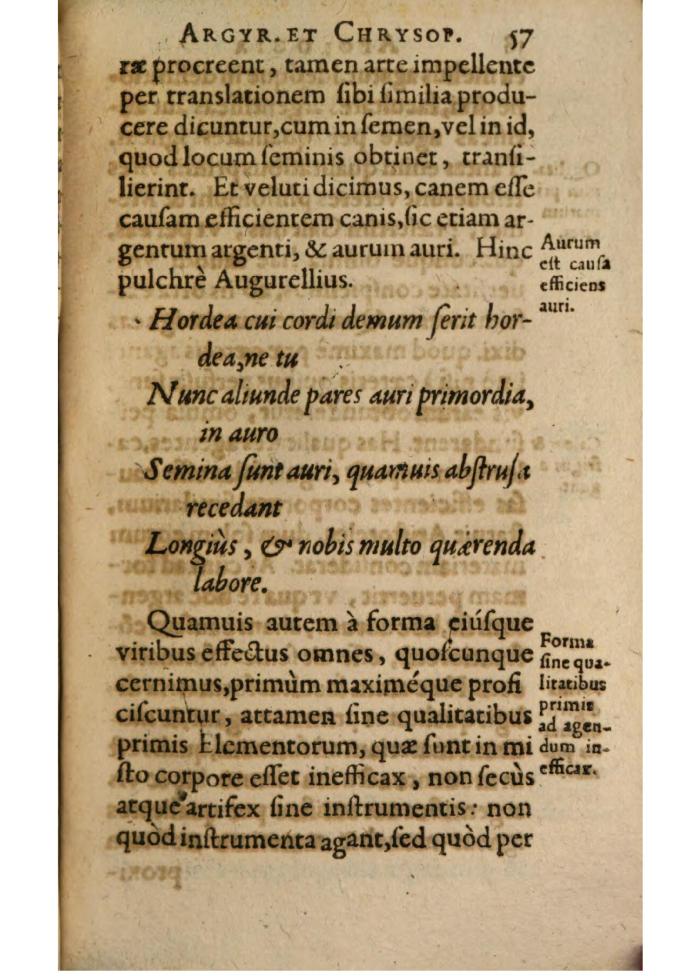 ARGYR. ET CHRYSOP. 57
ræ procreent, tamen arte impellente
per translationem ſibi ſimilia produ-
cere dicuntur,cum in ſemen,vel in id,
quod locum ſeminis obtinet, tranſi-
lierint. Et veluti dicimus, canem eſſe
cauſam efficientem canis,ſic etiam ar-
gentum argenti, & aurum auri. Hinc
pulchrè Augurellius.
Aurum
eſt cauſa
efficiens
auri.
Hordea cui cordi demum ſerit hor-
dea,ne tu
Nunc aliunde pares auri primordia,
in auro
Semina ſunt auri, quamuis abſtruſa
recedant
Longiùs, & nobis multo quærenda
labore.
Quamuis autem à forma eiúſque
viribus effectus omnes, quoſcunque
cernimus,primùm maximéque profi
ciſcuntur, attamen ſine qualitatibus
primis Elementorum, quæ ſunt in mi
ſto corpore eſſet inefficax, non ſecùs
atque artifex ſine inſtrumentis: non
quòd inſtrumenta agant,ſed quòd per
Forma
ſine qua-
litatibus
primis
ad agen-
dum in-
efficax.